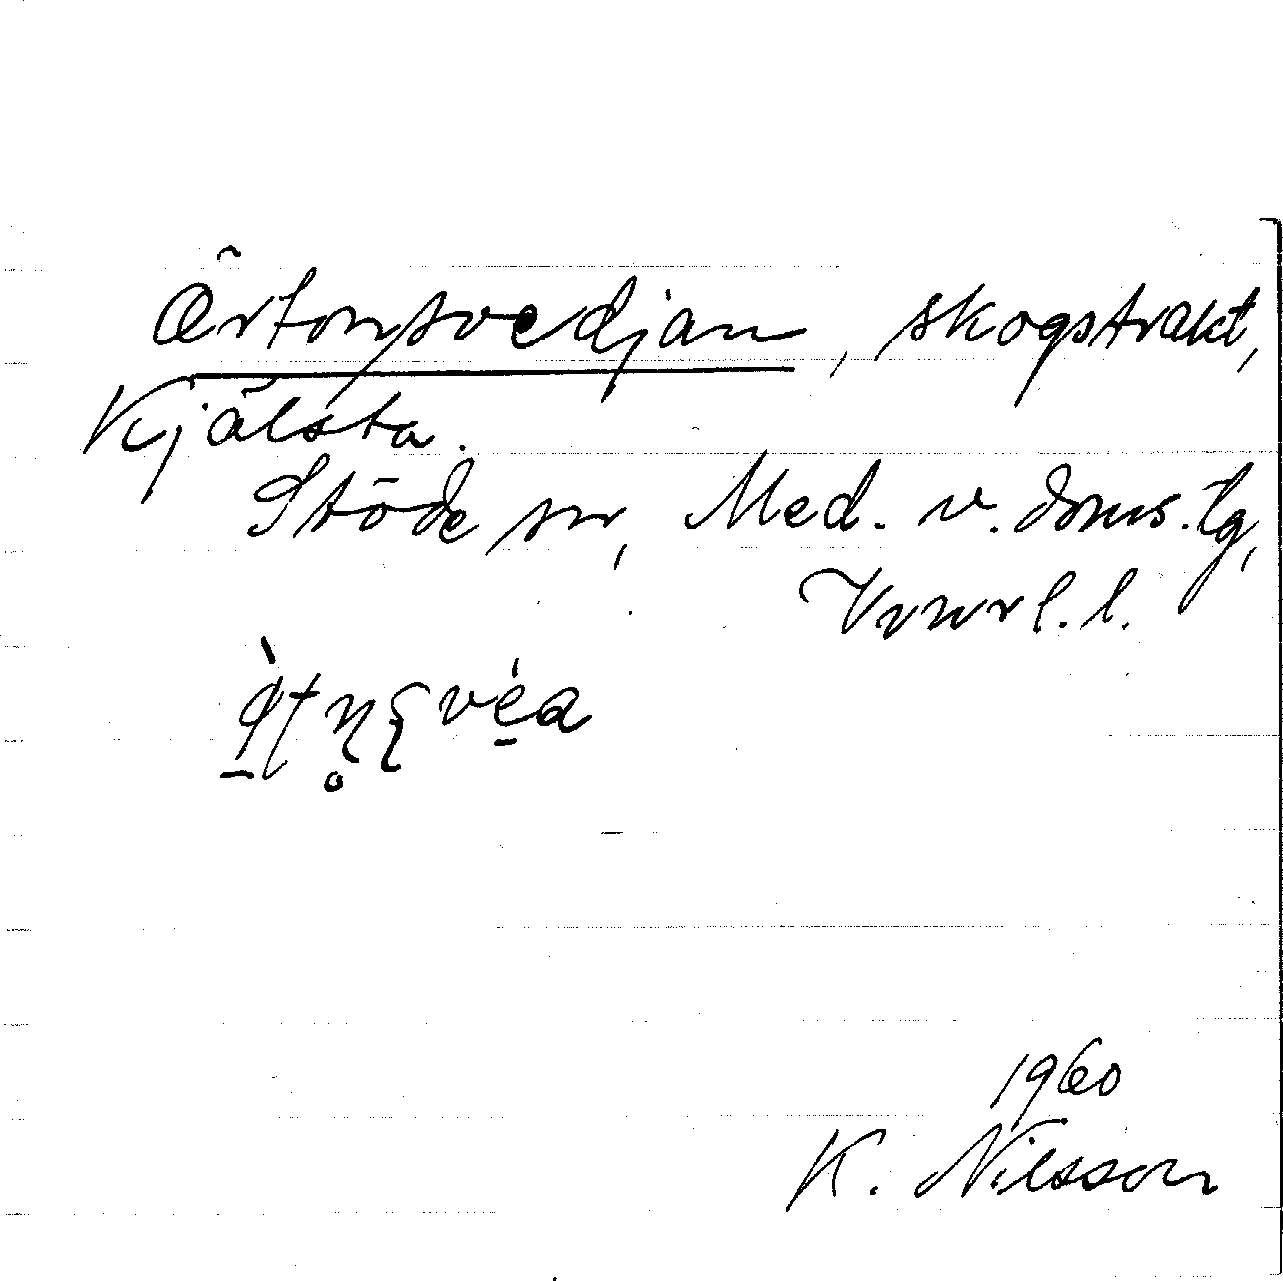 Ärtonsvedjan, skogstrakt,
Kjälsta.
Stöde sn, Med. v. doms.lg,
Vrnrl. l.
1960
K. Nilsson